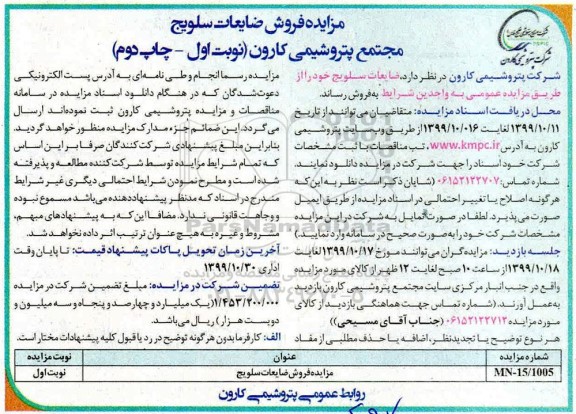 مزایده فروش ضایعات سلویج
مجتمع پتروشیمی کارون (نوبت اول - چاپ دوم)
شرکت پتروشیمی کارون
شرکت پتروشیمی کارون در نظر دارد، ضایعات سلویج خود را از
طریق مزایده عمومی به واجدین شرایط به فروش رساند.
محل دریافت اسناد مزایده: متقاضیان می توانند از تاریخ
۱۳۹۹/۱۰/۱۱ لغایت ۱۳۹۹/۱۰/۰۱۶ از طریق وب سایت پتروشیمی
کارون به آدرس www.kmpc.ir، تب مناقصات با ثبت مشخصات
شرکت خود اسناد را جهت شرکت در مزایده دانلود نمایند.
شماره تماس: ۰۶۱۵۲۱۲۲۷۰۷ (شایان ذکر است نظر به این که
هرگونه اصلاح یا تغییر احتمالی در اسناد مزایده از طریق ایمیل
صورت می پذیرد. لطفا در صورت تمایل به شرکت در این مزایده
مشخصات شرکت خود را به صورت صحیح در سامانه وارد نمایید.)
جلسه بازدید: مزایده گران می توانند مورخ ۱۳۹۹/۱۰/۱۷ لغایت
۱۳۹۹/۱۰/۱۸ از ساعت ۱۰ صبح لغایت ۱۲ ظهر از کالای مورد مزایده
واقع در جنب انبار مرکزی سایت مجتمع پتروشیمی کارون بازدید
به عمل آورند. (شماره تماس جهت هماهنگی بازدید از کالای
مورد مزایده ۰۶۱۵۲۱۲۲۷۱۲ (جناب آقای مسیحی))
هر نوع توضیح یا تجدیدنظر، اضافه یا حذف مطلبی از مفاد
مزایده رسما انجام و طی نامه ای به آدرس پست الکترونیکی
دعوت شدگان که در هنگام دانلود اسناد مزایده در سامانه
مناقصات و مزایده پتروشیمی کارون ثبت نموده اند ارسال
می گردد. این ضمائم جزء مدارک مزایده منظور خواهد گردید.
بنابراین مبلغ پیشنهادی شرکت کنندگان صرفا بر این اساس
که تمام شرایط مزایده توسط شرکت کننده مطالعه و پذیرفته
شده است و مطرح نمودن شرایط احتمالی دیگری غیر شرایط
مندرج در اسناد که مدنظر پیشنهاددهنده می باشد مسموع نبوده
و وجاهت قانونی ندارد. مضافا این که به پیشنهادهای مبهم،
مشروط و ناقص به هیچ عنوان ترتیب اثر داده نخواهد شد.
آخرین زمان تحویل پاکات پیشنهاد قیمت: تا پایان وقت
اداری ۱۳۹۹/۱۰/۳۰
تضمین شرکت در مزایده: مبلغ تضمین شرکت در مزایده
۱/۴۵۳/۲۰۰/۰۰۰ (یک میلیارد و چهارصد و پنجاه و سه میلیون و
دویست هزار) ریال می باشد.
الف: کارفرما بدون هرگونه توضیح در رد یا قبول کلیه پیشنهادات مختار است.
شماره مزایده عنوان نوبت مزایده
MN-15/1005 مزایده فروش ضایعات سلویج نوبت اول
روابط عمومی پتروشیمی کارون